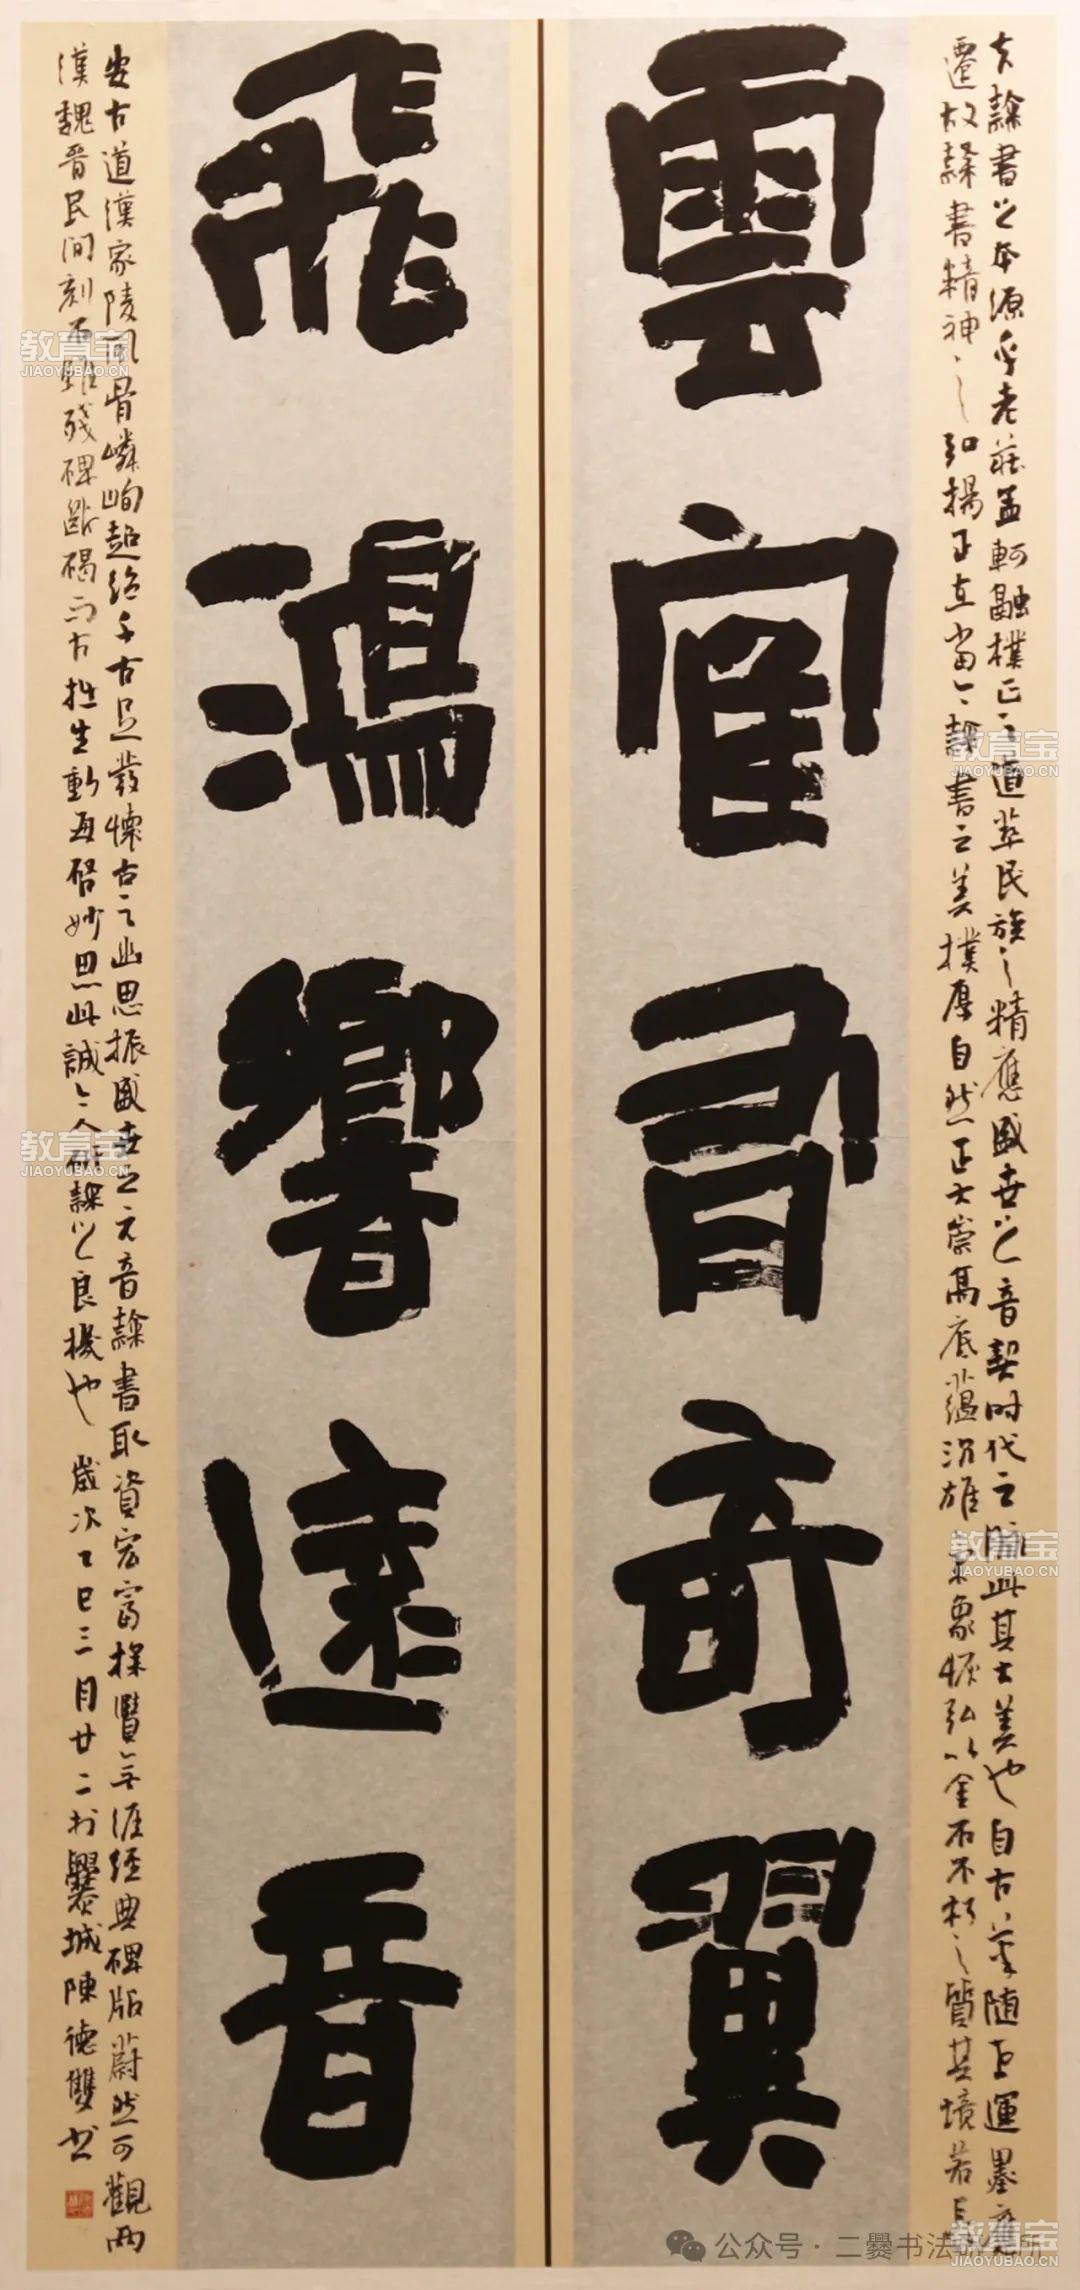 雲寉有奇翼
飛鴻響遠音
夫隸書之本源乎老莊孟軻融樸正之道萃民族之精應盛世之音契時代之脈此其大美也自古筆隨世運墨應
遷故隸書精神之弘揚正立當今隸書之美樸厚自然正大崇高底蘊沉雄氣象恢弘以金石不朽之質其境若長
安古道漢家陵風骨嶙峋超絕千古足發懷古之幽思振盛世之元音隸書取資宏富採無涯經典碑版蔚然可觀兩
漢魏晉民間刻石雖殘碑斷碣而古拙生動再啟妙思此誠今人研隸之良機也 歲次乙巳三月廿二於爨城陳德雙書
教育宝
JIAOYUBAO.CN
教育宝
JIAOYUBAO.CN
教育宝
JIAOYUBAO.CN
教育宝
JIAOYUBAO.CN
教育宝
JIAOYUBAO.CN
公众号·二爨书法研究所